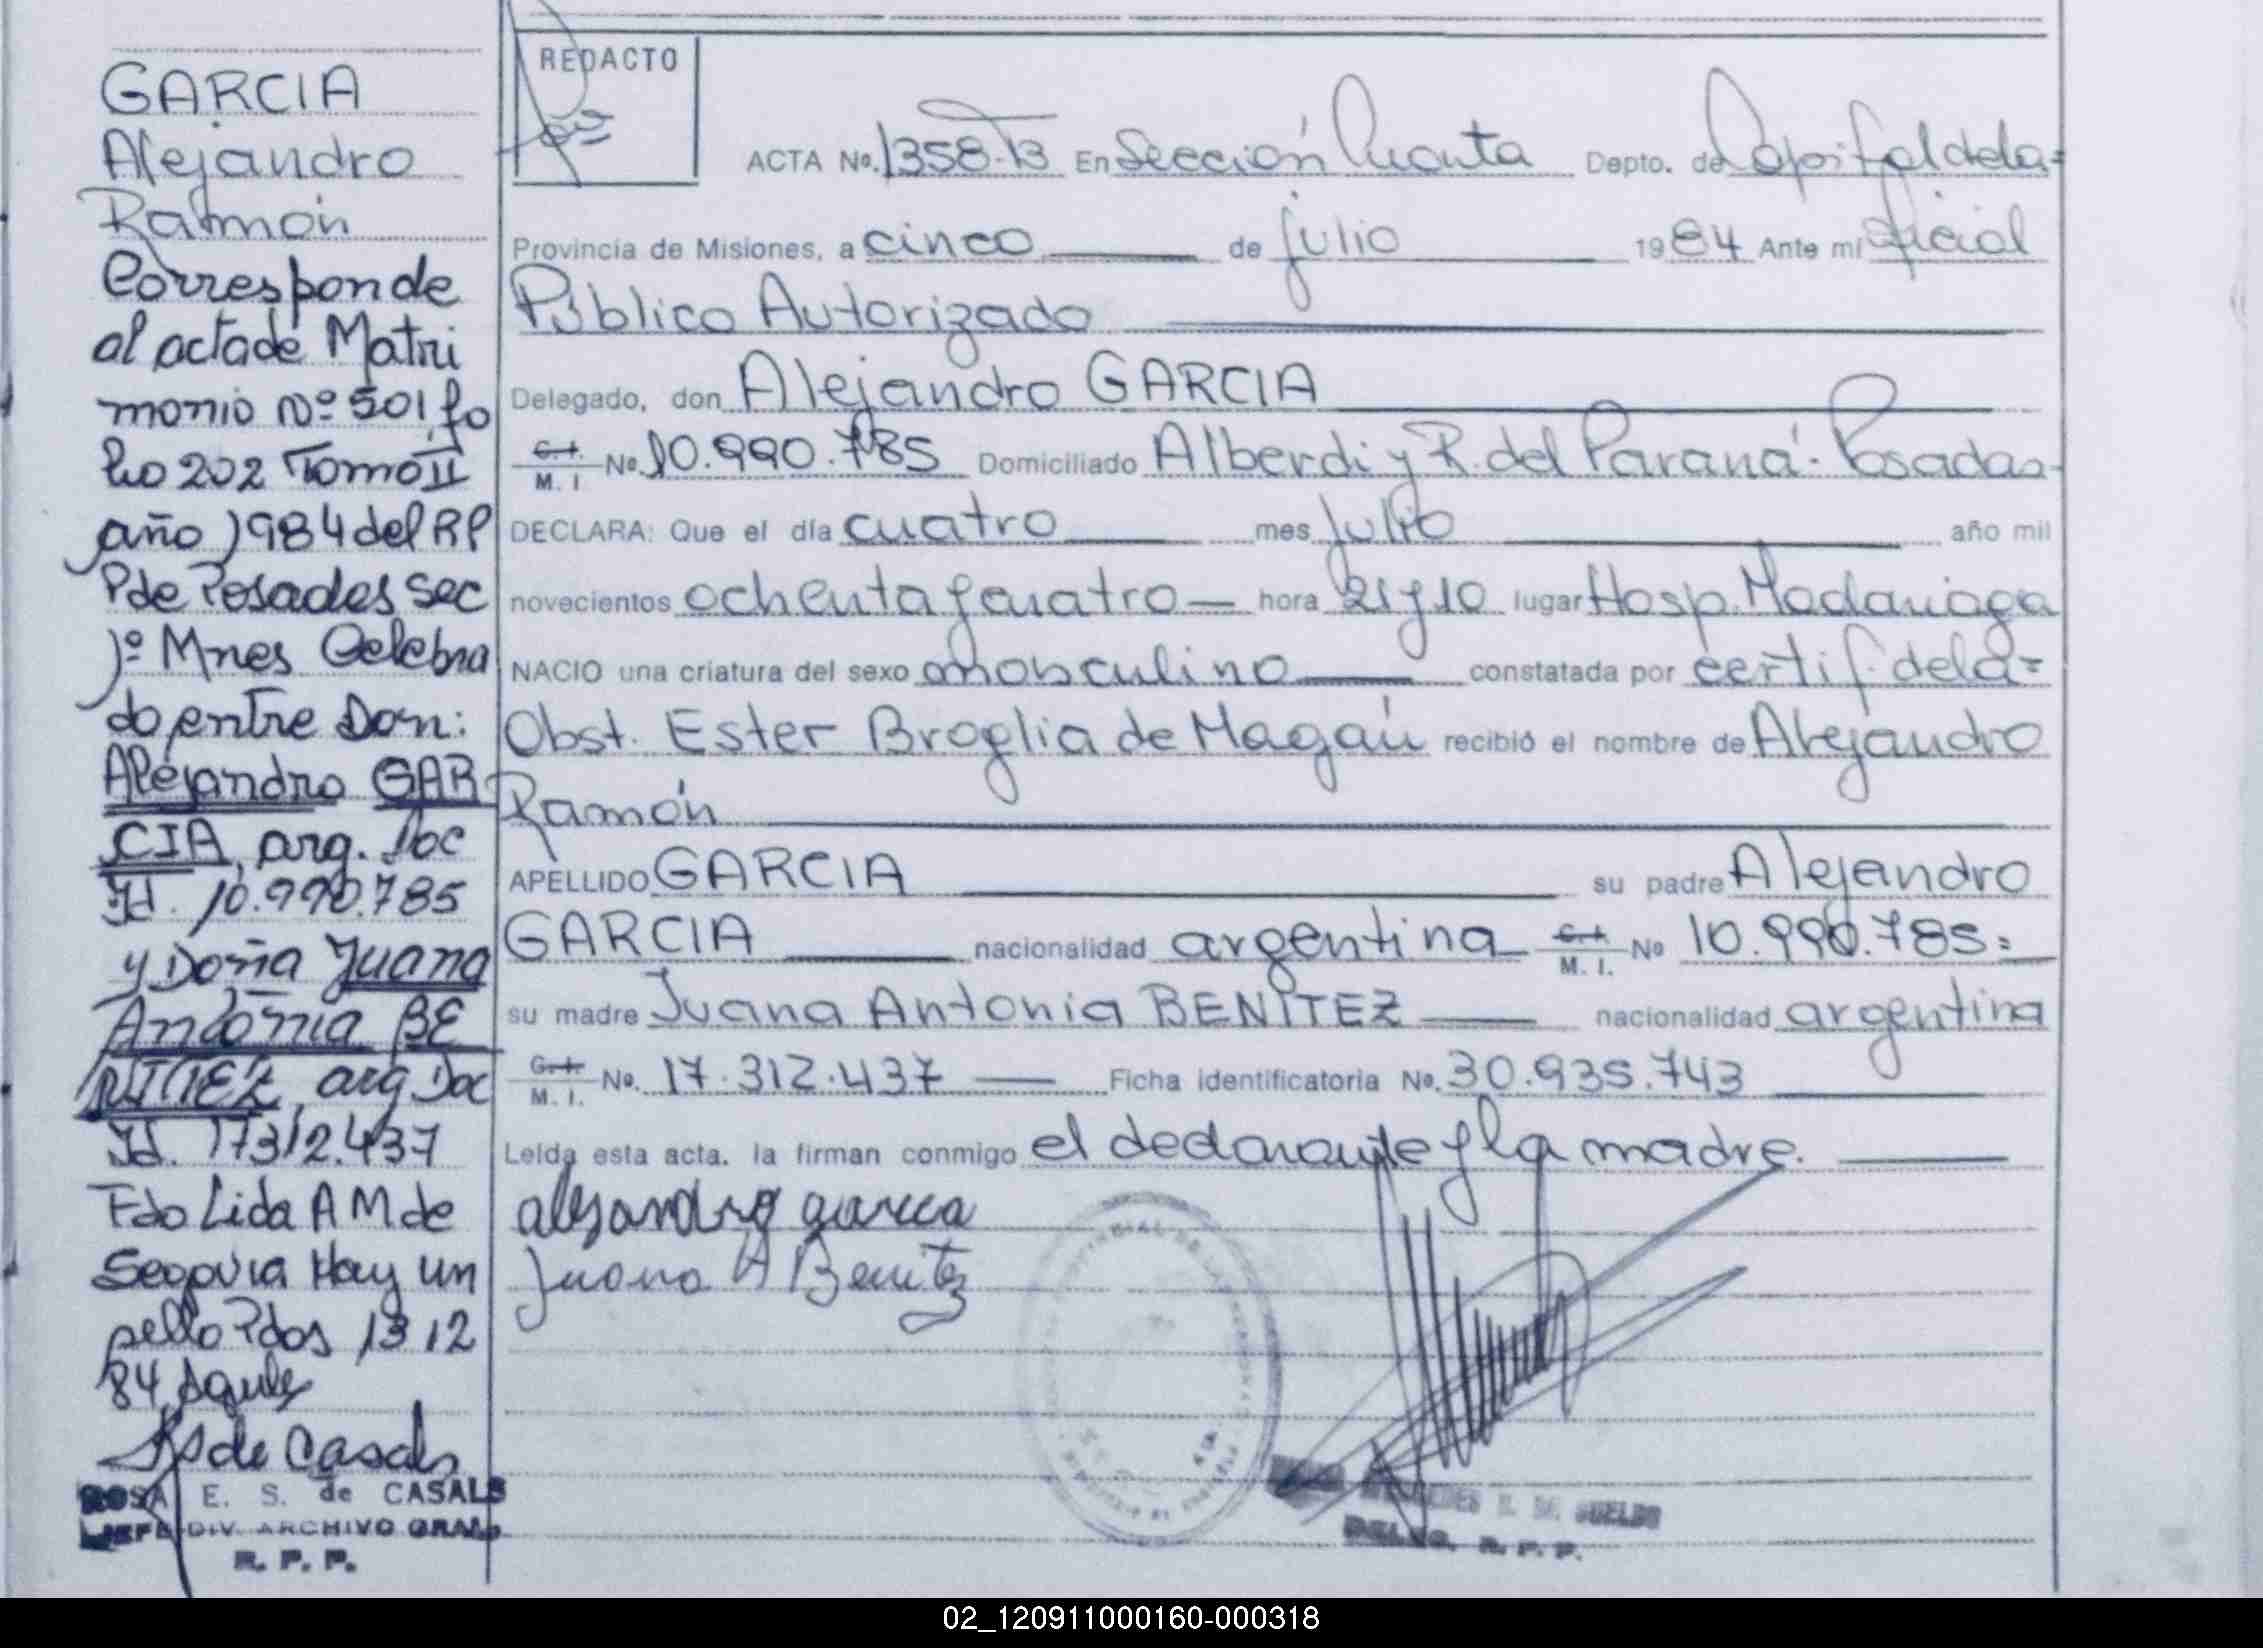 GARCIA
Alejandro
Ramón
Corresponde
al acta de Matri
monio Nº 501, fo
lio 202 Tomo II
año 1984 del RP
P de Posadas Sec
1º Mnes Celebra
do entre Don:
Alejandro GAR
CIA, arg. Doc
Id. 10.990.785
y Doña Juana
Antonia BE
NITEZ, arg Doc
Id. 17312.437
Fdo Lida A M de
Segovia Hay un
sello Pdas 13 12
84
S de Casals
ROSA E. S. de CASALS
JEFE DIV. ARCHIVO GRAL.
R. P. P.
REDACTO
ACTA No. 1358-T3 En Sección Cuarta Depto. de Capital de la=
Provincia de Misiones, a cinco de julio 1984 Ante mí Oficial
Público Autorizado
Delegado, don Alejandro GARCIA
C.I. M. I. No. 10.990.785 Domiciliado Alberdi y R. del Paraná- Posadas-
DECLARA: Que el día cuatro mes Julio año mil
novecientos ochenta y cuatro hora 21 y 10 lugar Hosp. Madariaga
NACIO una criatura del sexo masculino constatada por certif. de la=
Obst. Ester Broglia de Magán recibió el nombre de Alejandro
Ramón
APELLIDO GARCIA su padre Alejandro
GARCIA nacionalidad argentina C.I. M. I. No 10.990.785=
su madre Juana Antonia BENITEZ nacionalidad argentina
C.I. M. I. No. 17.312.437 Ficha identificatoria No. 30.935.743
Leída esta acta. la firman conmigo el declarante y la madre.
alejandro garcia
Juana A Benitez
DE SUELDO
DELEG. R. P. P.
02_120911000160-000318